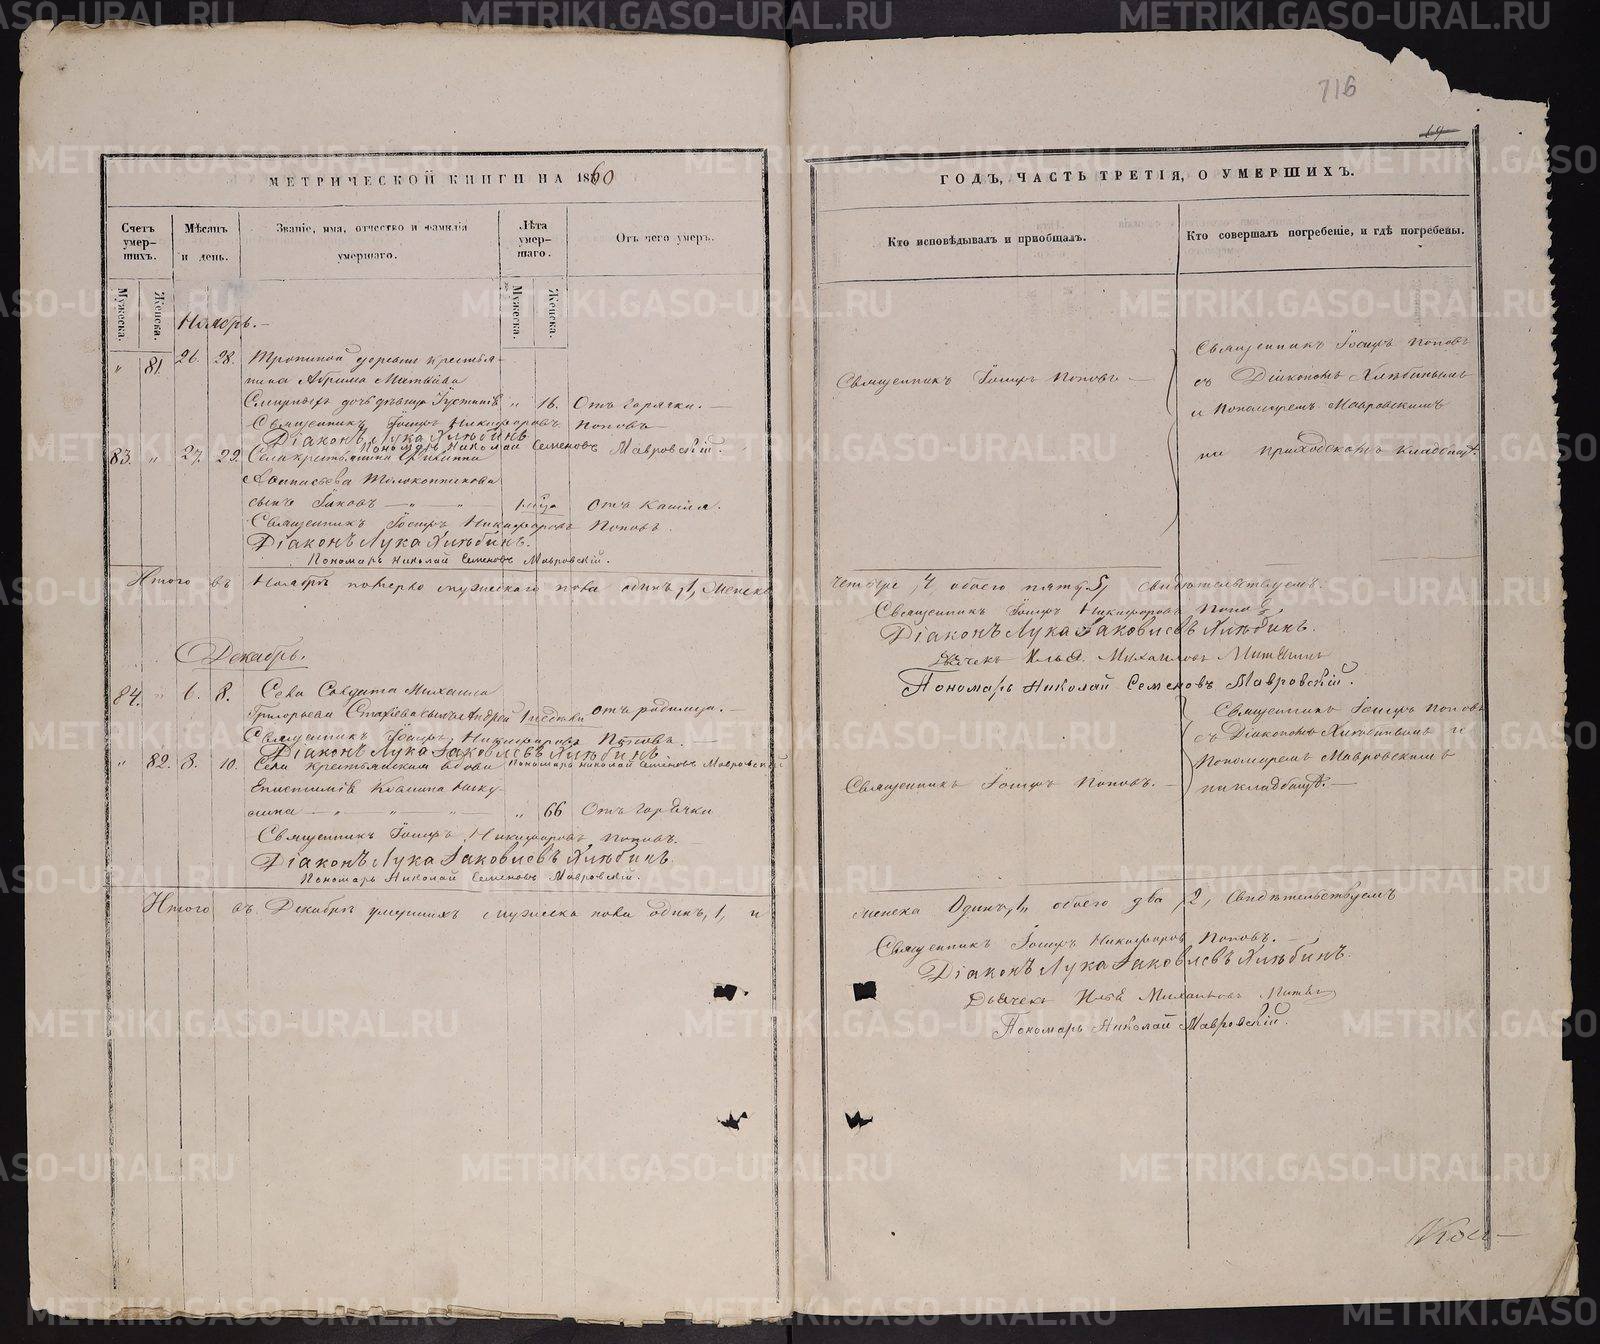 716
19
МЕТРИЧЕСКОЙ КНИГИ НА 1860
ГОДЪ, ЧАСТЬ ТРЕТІЯ, О УМЕРШИХЪ.
Счетъ умер-шихъ.
Мужеска.
Женска.
Мѣсяцъ и день.
Званіе, имя, отчество и фамилія умершаго.
Лѣта умер-шаго.
Мужеска.
Женска.
Отъ чего умеръ.
Кто исповѣдывалъ и приобщалъ.
Кто совершалъ погребеніе, и гдѣ погребены.
Ноябрь.
" 81. 26. 28. деревни крестья-
нина Абрама Матвѣева
дочь дѣвица " 16. Отъ горячки.
Священникъ Іосифъ Никифоровъ Поповъ
Діаконъ Лука Хлѣбинъ
Пономарь Николай Семеновъ Мавровскій.
Священникъ Іосифъ Поповъ
Священникъ Іосифъ Поповъ
съ Діакономъ Хлѣбинымъ
и Пономаремъ Мавровскимъ
на приходскомъ кладбищѣ.
83. " 27. 29. Села крестьянина Филиппа
сынъ Іаковъ Отъ кашля.
Священникъ Іосифъ Никифоровъ Поповъ.
Діаконъ Лука Хлѣбинъ.
Пономарь Николай Семеновъ Мавровскій.
Итого въ Ноябрѣ померло мужескаго пола одинъ, 1, женска
четыре, 4, обоего пять, 5, свидѣтельствуемъ.
Священникъ Іосифъ Никифоровъ Поповъ,
Діаконъ Лука Іаковлевъ Хлѣбинъ.
Дьячекъ Илья Михаиловъ
Пономарь Николай Семеновъ Мавровскій.
Декабрь.
84. " 6. 8. Села Солдата Михаила
Григорьева сынъ Андрей отъ родимца.
Священникъ Іосифъ Никифоровъ Поповъ.
Діаконъ Лука Іаковлевъ Хлѣбинъ
Пономарь Николай Семеновъ Мавровскій
Священникъ Іосифъ Поповъ
съ Діакономъ Хлѣбинымъ и
Пономаремъ Мавровскимъ
на кладбищѣ.
" 82. 8. 10. Села крестьянская вдова
Епистимія
" 66 Отъ горячки
Священникъ Іосифъ Поповъ.
Священникъ Іосифъ Никифоровъ Поповъ.
Діаконъ Лука Іаковлевъ Хлѣбинъ
Пономарь Николай Семеновъ Мавровскій.
Итого въ Декабрѣ умершихъ мужеска пола одинъ, 1, и
женска Одинъ, 1, обоего два, 2, свидѣтельствуемъ
Священникъ Іосифъ Никифоровъ Поповъ.
Діаконъ Лука Іаковлевъ Хлѣбинъ.
Дьячекъ Илья Михаиловъ
Пономарь Николай Мавровскій.
METRIKI.GASO-URAL.RU